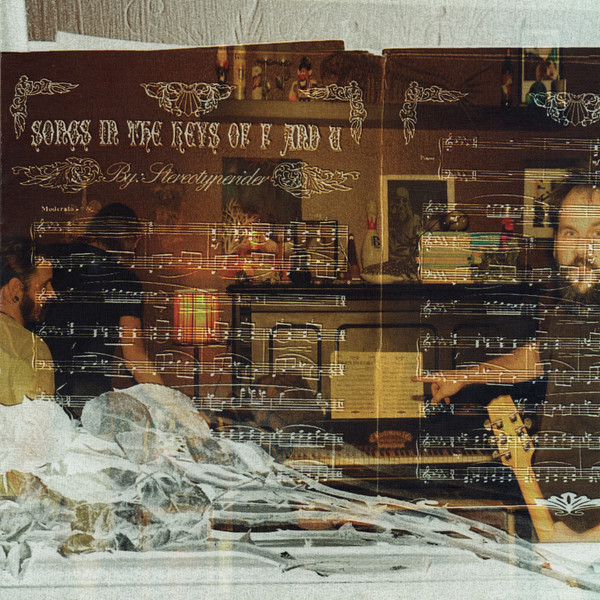 SONGS IN THE KEYS OF F AND U
By: Stereotyperider
Moderato
Piano